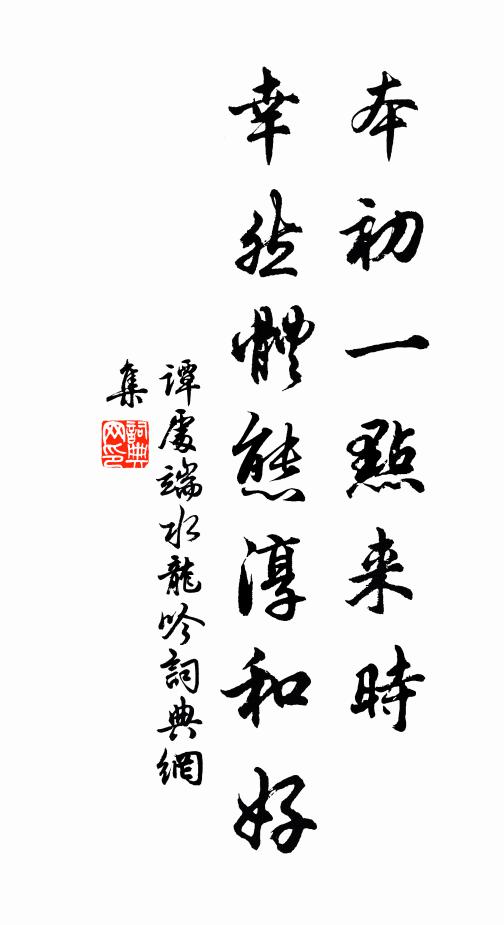 本初一點来時
幸然體態淳和好
谭處端水龍吟詞典網
集
詞典网印